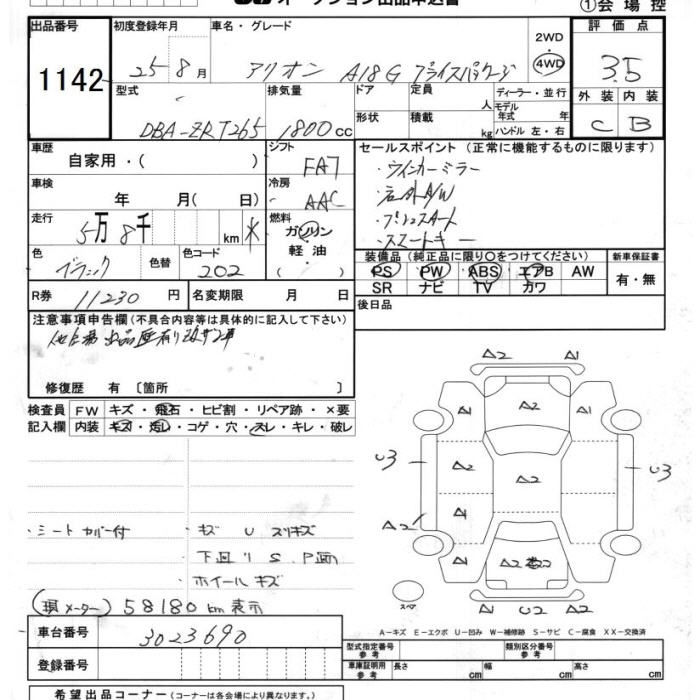 オークション出品申込書
①会場控
出品番号 初度登録年月 車名・グレード 2WD 評価点
1142 25年8月 アリオン A18G プライスパケージ 4WD 3.5
型式 排気量 ドア 定員 人 ディーラー・並行 外装 内装
DBA-ZRT265 1800cc 形状 積載 kg モデル年式 年 ハンドル 左・右 C B
車歴 シフト セールスポイント (正常に機能するものに限ります)
自家用・( ) FAT ・ウインカーミラー
車検 冷房 ・社外A/W
年 月(日) AAC ・プッシュスタート
走行 燃料 ・スマートキー
5万8千 km ガソリン
軽油
・( )
色 色替 色コード 装備品 (純正品に限り○をつけてください) 新車保証書
ブラック 202 PS PW ABS エアB AW 有・無
SR ナビ TV カワ
R券 11230円 名変期限 月 日 後日品
注意事項申告欄(不具合内容等は具体的に記入して下さい)
修復歴 有 〔箇所 〕
検査員 FW キズ・飛石・ヒビ割・リペア跡・×要
記入欄 内装 キズ・汚レ・コゲ・穴・スレ・キレ・破レ
A2 A1
A1 A2 A1
U3 A2 A2 U3
A2 A1
A1 A2 A1
A1 U2 A2
スペア
・シートカバー付 ・キズ U スリキズ
下回り S.P面
ホイールキズ
(現メーター) 58180km表示
A−キズ E−エクボ U−凹み W−補修跡 S−サビ C−腐食 XX−交換済
車台番号 3023690
型式指定番号 参考 類別区分番号 参考
登録番号
車庫証明用 参考 長さ cm 幅 cm 高さ cm
希望出品コーナー (コーナーは各会場により異なります。)